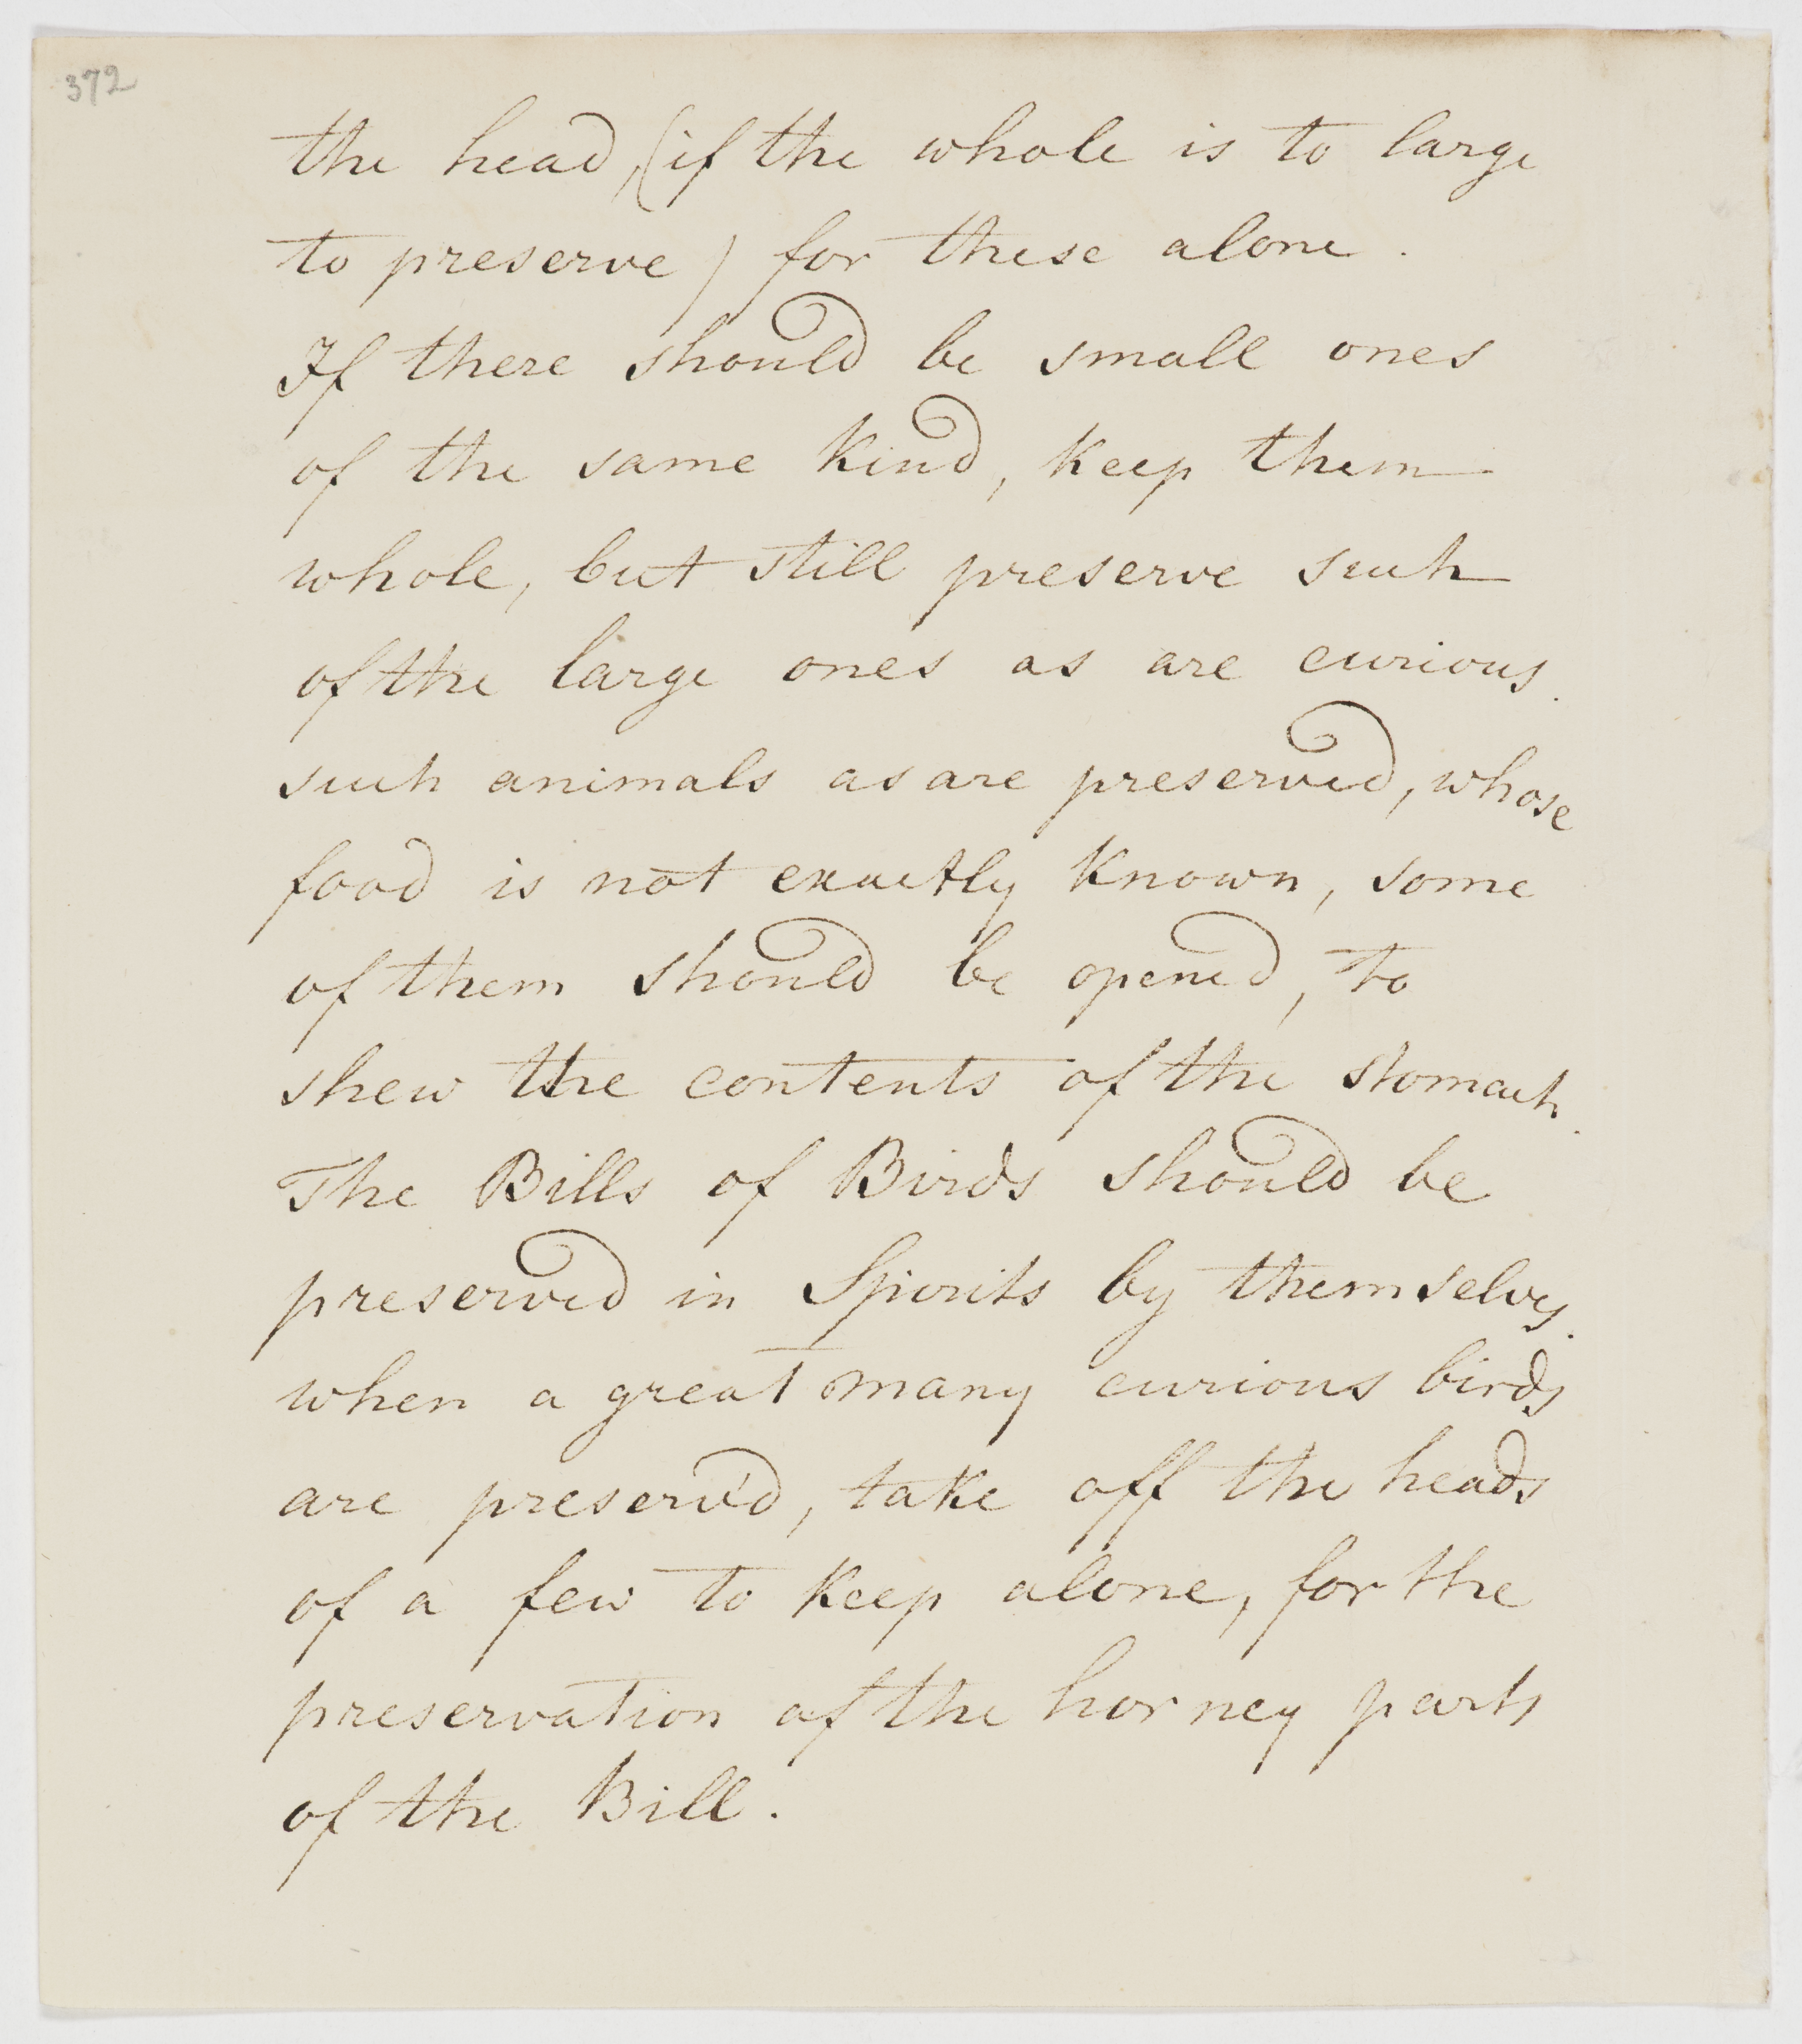 372
the head, (if the whole is to large
to preserve) for these alone.
If there should be small ones
of the same kind, keep them
whole, but still preserve such
of the large ones as are curious.
such animals as are preserved, whose
food is not exactly known, some
of them should be opened, to
shew the contents of the stomach.
The Bills of Birds should be
preserved in Spirits by themselves.
when a great many curious birds
are preserv'd, take off the heads
of a few to keep alone, for the
preservation of the horney parts
of the Bill.